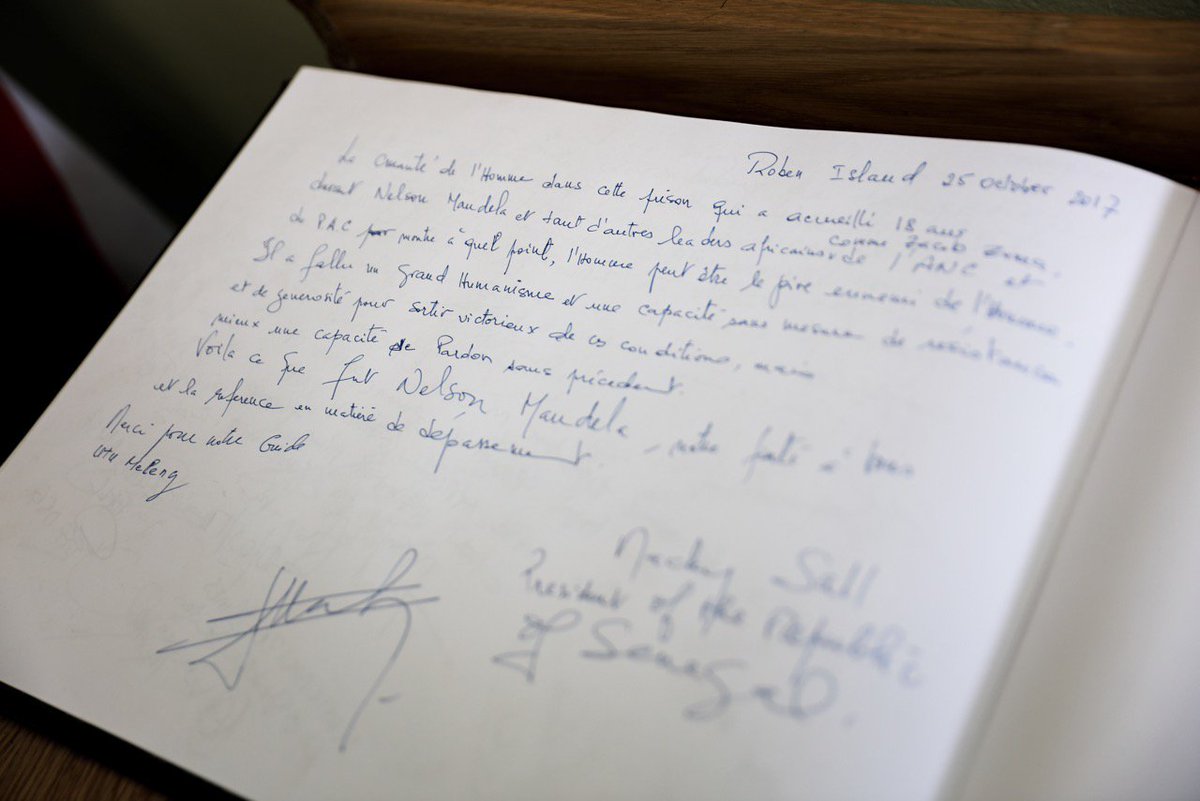 Roben Island 25 october 2017
La cruauté de l'Homme dans cette prison qui a accueilli 18 ans
durant Nelson Mandela et tant d'autres leaders africains de l'ANC et
comme Jacob Zuma.
du PAC montre à quel point, l'Homme peut être le pire ennemi de l'Homme.
Il a fallu un grand Humanisme et une capacité sans mesure de résistance
et de generosité pour sortir victorieux de ces conditions, mais
mieux une capacité de Pardon sans précédent.
Voilà ce que fut Nelson Mandela, notre à tous
et la reference en matière de dépassement.
Merci pour notre Guide
Macky Sall
President of the Republic
of Senegal.